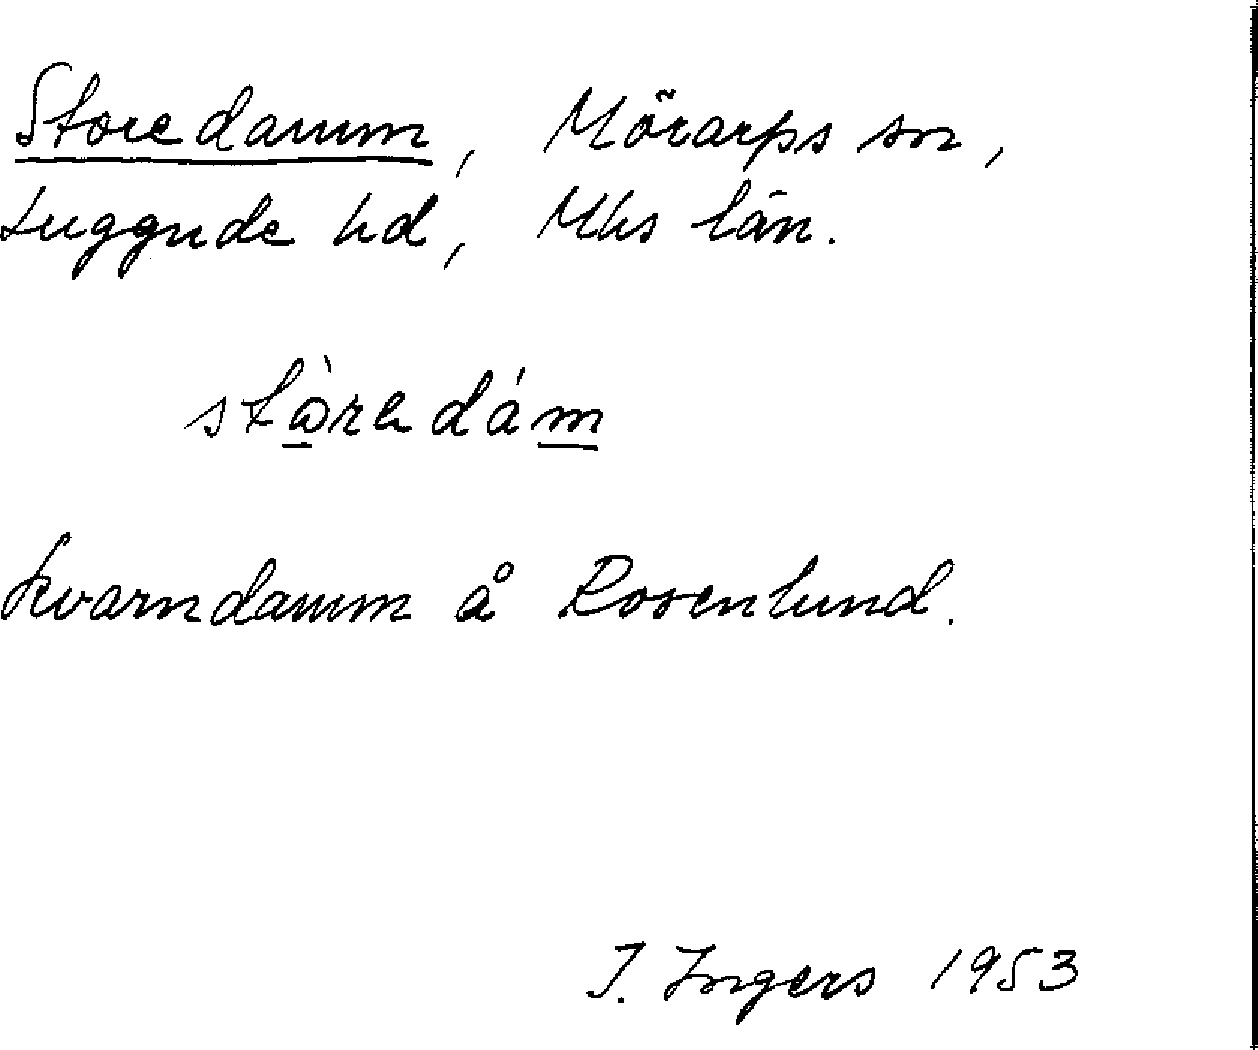 Storedamm, Mörarps sn,
Luggude hd, Mhs län.
stòredám
Kvarndamm å Rosenlund.
I. Ingers 1953